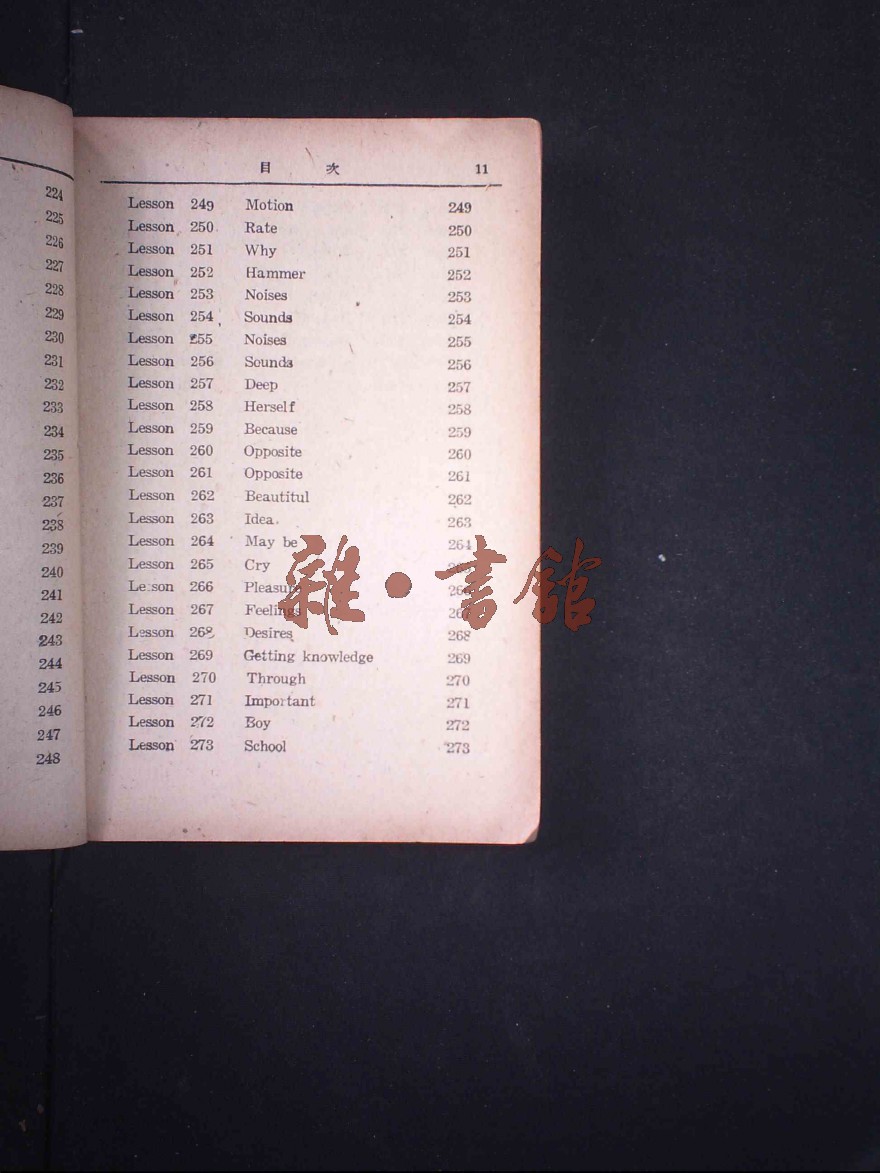 224
225
226
227
228
229
230
231
232
233
234
235
236
237
238
239
240
241
242
243
244
245
246
247
248
目 次 11
Lesson 249 Motion 249
Lesson 250 Rate 250
Lesson 251 Why 251
Lesson 252 Hammer 252
Lesson 253 Noises 253
Lesson 254 Sounds 254
Lesson 255 Noises 255
Lesson 256 Sounds 256
Lesson 257 Deep 257
Lesson 258 Herself 258
Lesson 259 Because 259
Lesson 260 Opposite 260
Lesson 261 Opposite 261
Lesson 262 Beautitul 262
Lesson 263 Idea 263
Lesson 264 May be 264
Lesson 265 Cry
Lesson 266 Pleasure
Lesson 267 Feelings
Lesson 268 Desires 268
Lesson 269 Getting knowledge 269
Lesson 270 Through 270
Lesson 271 Important 271
Lesson 272 Boy 272
Lesson 273 School 273
雜·書館